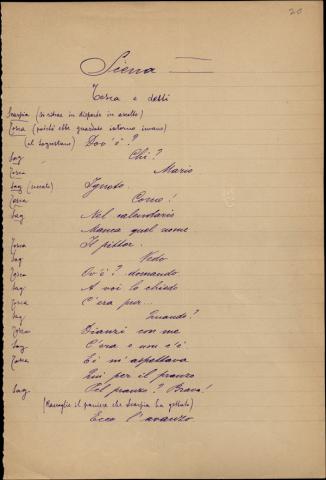 20
Siena
Tosca e detti
Scarpia (si ritrae in disparte in ascolto)
Tosca (poichè ebbe guardato intorno invano)
(al sagrestano) Dov'è?
Sag. Chi?
Tosca Mario
Sag (seccato) Ignoto.
Tosca Come!
Sag Nel calendario
Manca quel nome
Tosca Il pittor.
Sag Vedo
Tosca Ov'è? domando
Sag A voi lo chiedo
Tosca C'era pur...
Sag Quando?
Tosca Dianzi con me
Sag C'era e non c'è
Tosca Ei m'aspettava
Qui per il pranzo
Sag. Pel pranzo? Brava!
(Raccoglie il paniere che Scarpia ha gettato)
Ecco l'avanzo